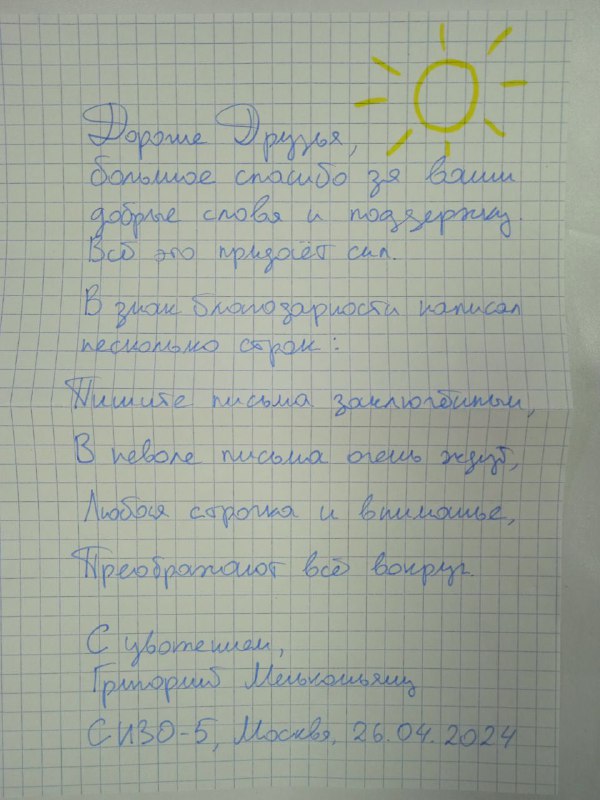 Дорогие Друзья,
большое спасибо за ваши
добрые слова и поддержку.
Всё это придаёт сил.
В знак благодарности написал
несколько строк:
Пишите письма заключённым,
В неволе письма очень ждут,
Любая строчка и вниманье,
Преображают всё вокруг.
С уважением,
Григорий Мельконьянц
СИЗО-5, Москва, 26.04.2024